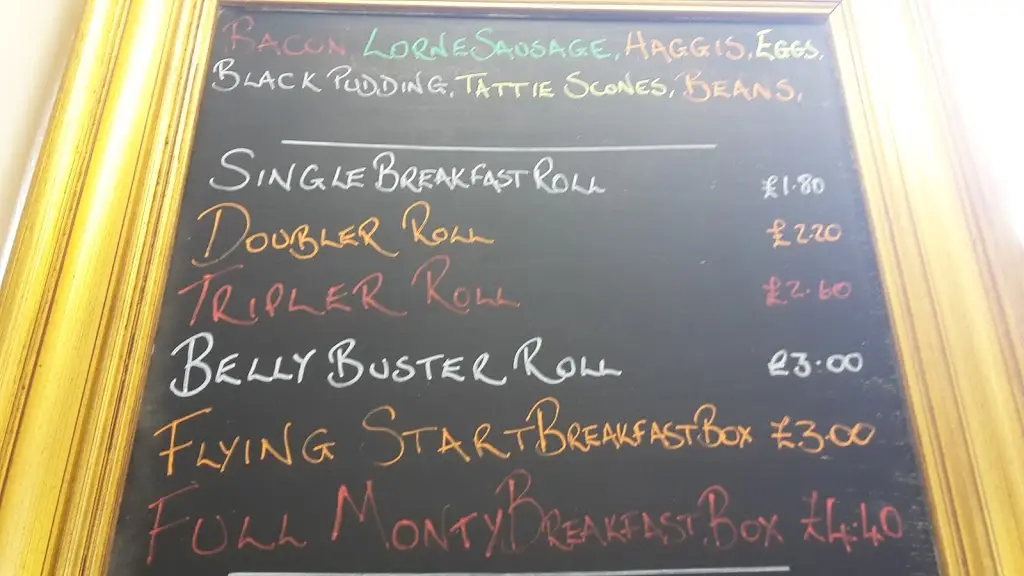 BACON, LORNE SAUSAGE, HAGGIS, EGGS,
BLACK PUDDING, TATTIE SCONES, BEANS,
SINGLE BREAKFAST ROLL £1.80
DOUBLER ROLL £2.20
TRIPLER ROLL £2.60
BELLY BUSTER ROLL £3.00
FLYING START BREAKFAST BOX £3.00
FULL MONTY BREAKFAST BOX £4.40